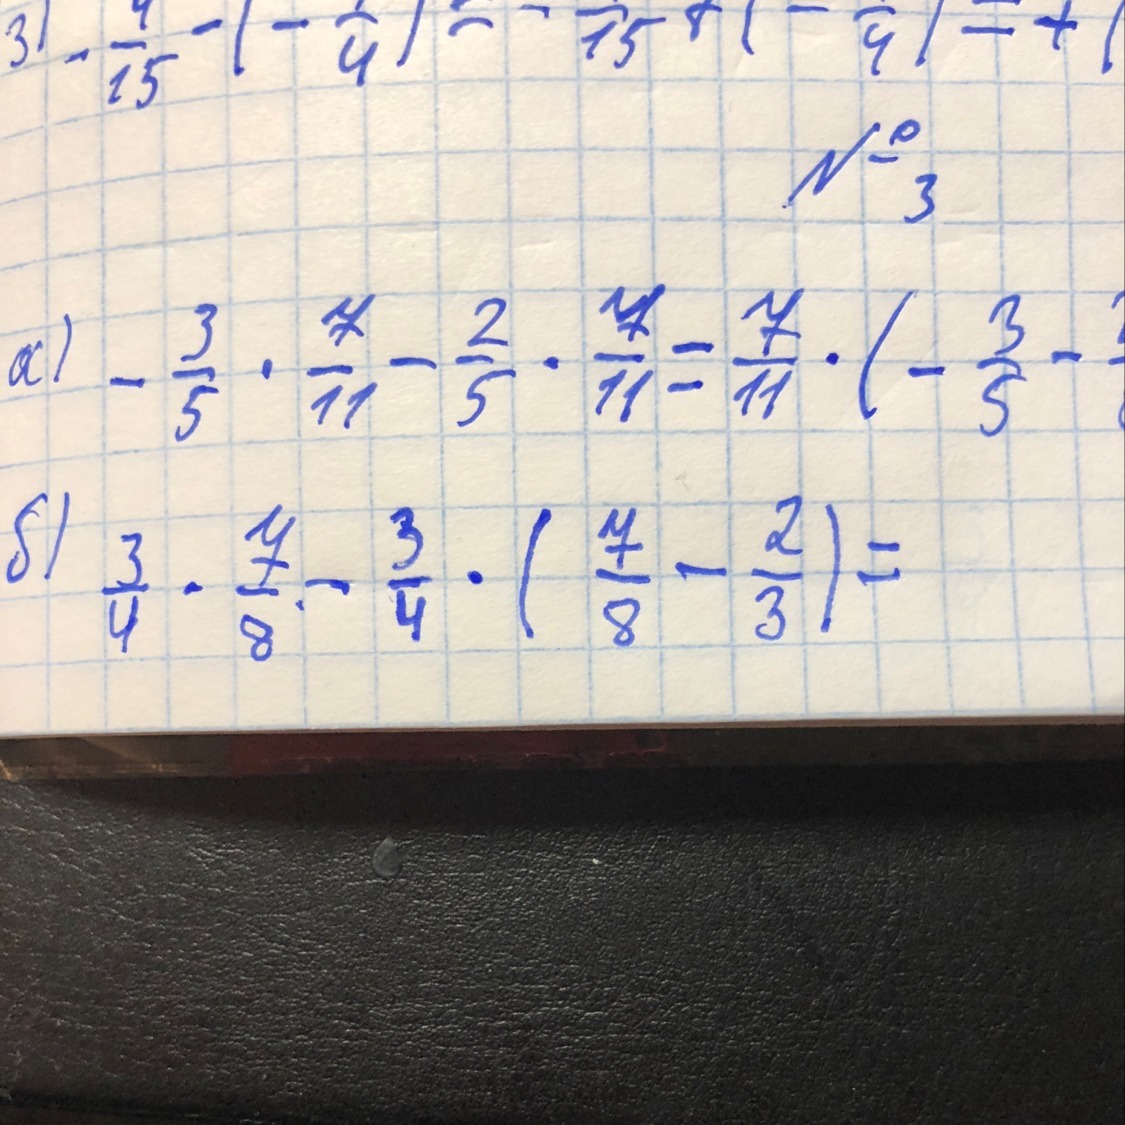 3) - 4/15 - (- 1/4) = - 4/15 + (- 1/4) = + (
№ 3
а) - 3/5 · 7/11 - 2/5 · 7/11 = 7/11 · (- 3/5 -
б) 3/4 · 7/8 - 3/4 · (7/8 - 2/3) =